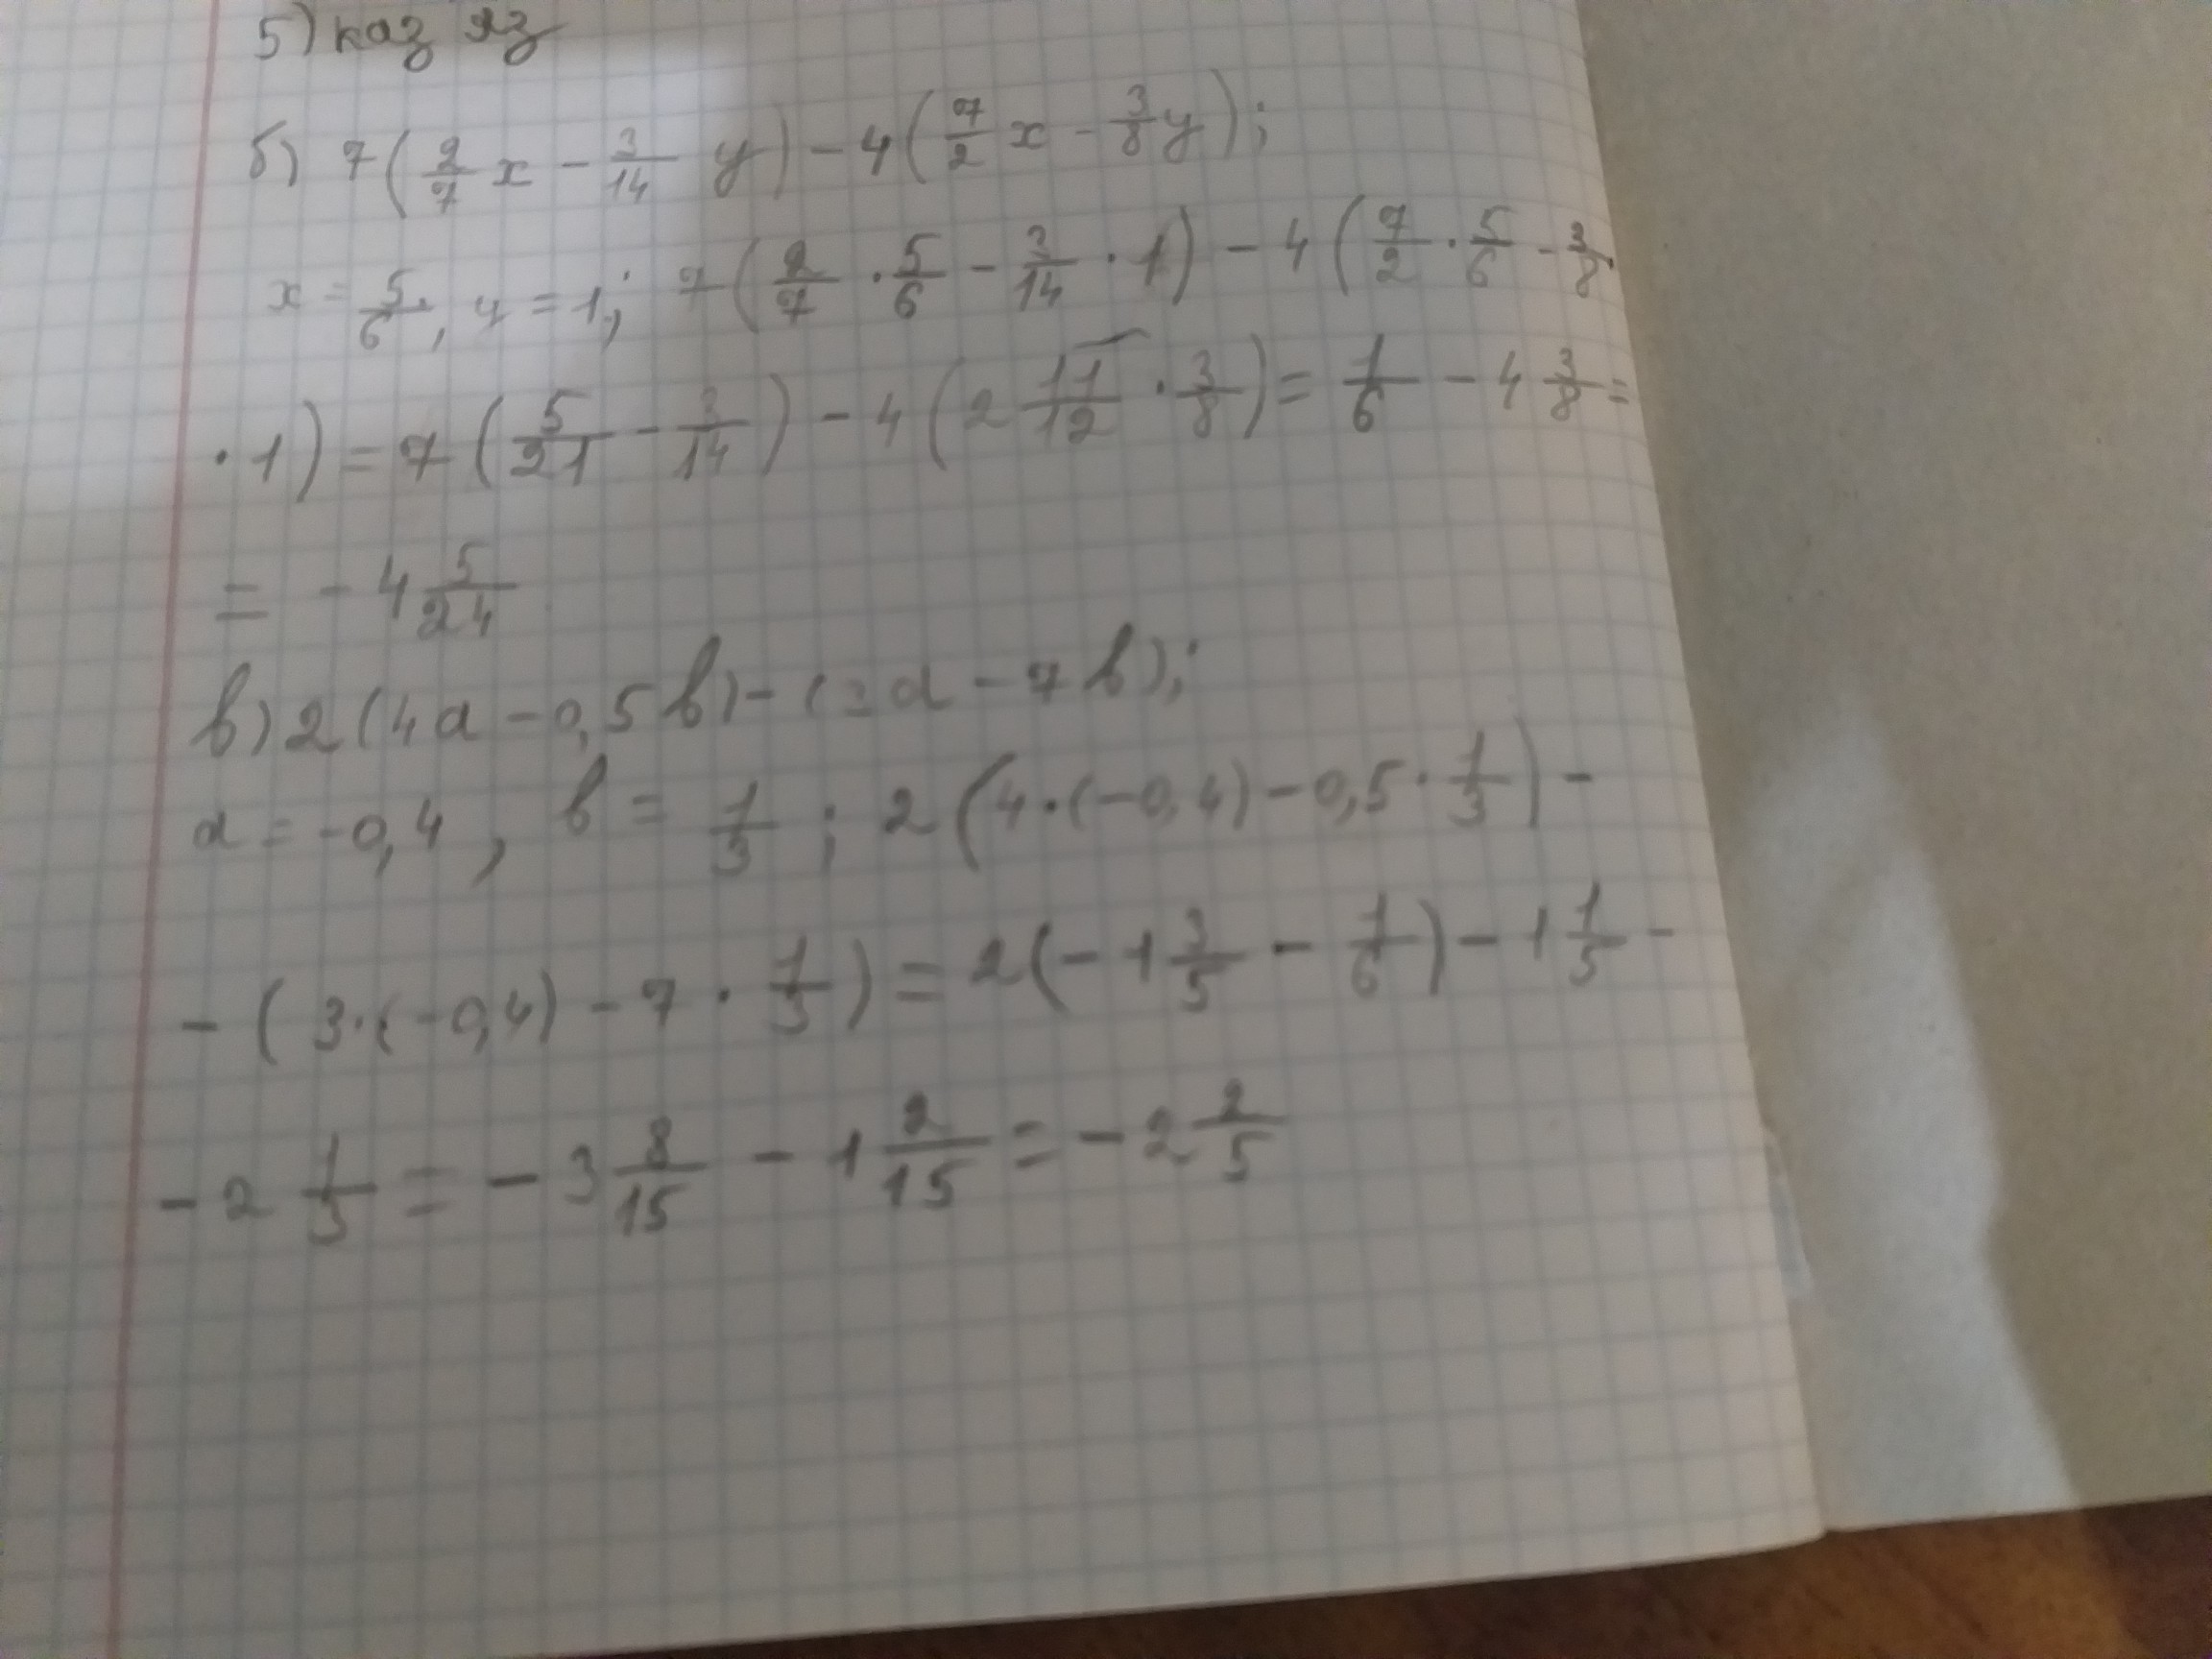 5) каз яз
б) 7(2/7 x - 3/14 y) - 4(7/2 x - 3/8 y);
x = 5/6, y = 1; 7(2/7 · 5/6 - 3/14 · 1) - 4(7/2 · 5/6 - 3/8
· 1) = 7(5/21 - 3/14) - 4(2 11/12 · 3/8) = 1/6 - 4 3/8 =
= - 4 5/24
в) 2(4a - 0,5b) - (3a - 7b);
a = -0,4, b = 1/3; 2(4·(-0,4) - 0,5 · 1/3) -
- (3·(-0,4) - 7 · 1/3) = 2(-1 3/5 - 1/6) - 1 1/5 -
- 2 1/3 = - 3 8/15 - 1 2/15 = - 2 2/5